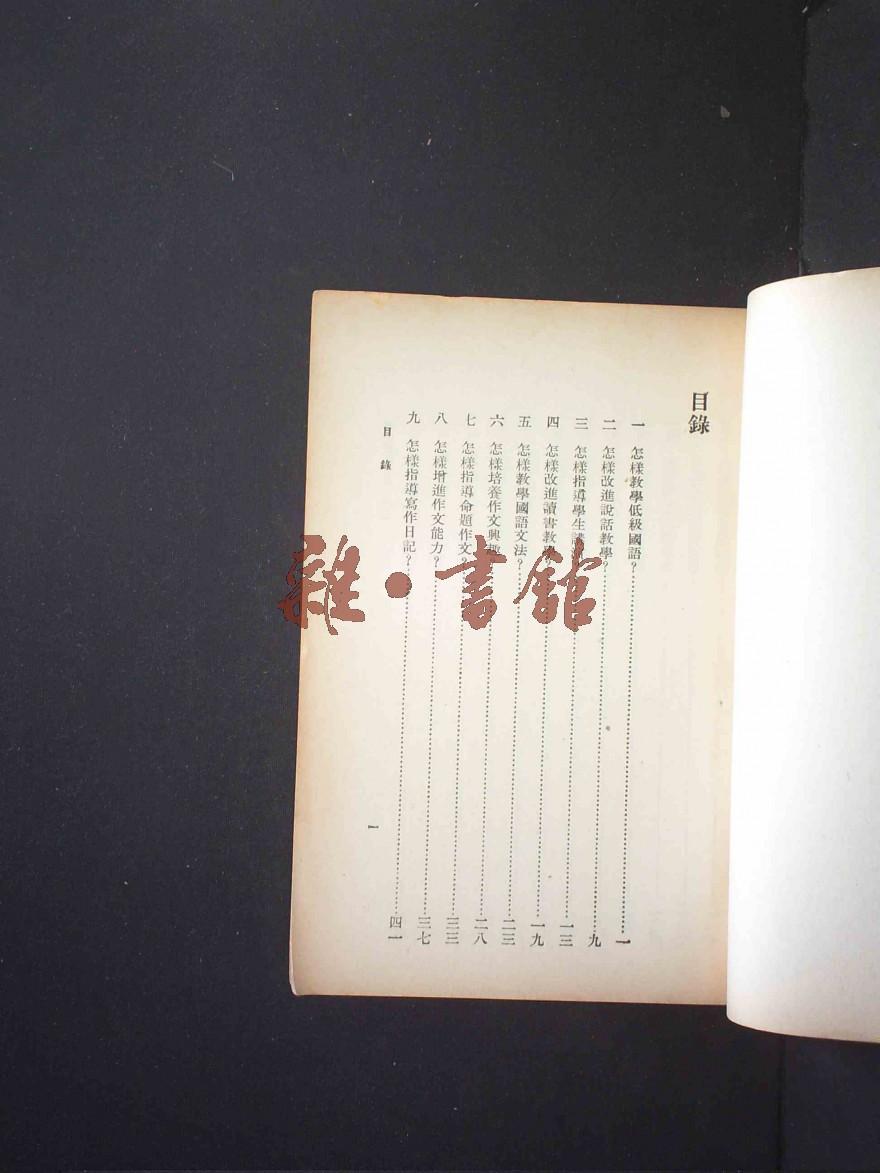 目錄
一 怎樣教學低級國語?⋯⋯一
二 怎樣改進說話教學?⋯⋯九
三 怎樣指導學生⋯⋯一三
四 怎樣改進讀書教學⋯⋯一九
五 怎樣教學國語文法?⋯⋯二三
六 怎樣培養作文興趣⋯⋯二八
七 怎樣指導命題作文?⋯⋯三三
八 怎樣增進作文能力?⋯⋯三七
九 怎樣指導寫作日記?⋯⋯四一
目錄
一
雜·書館